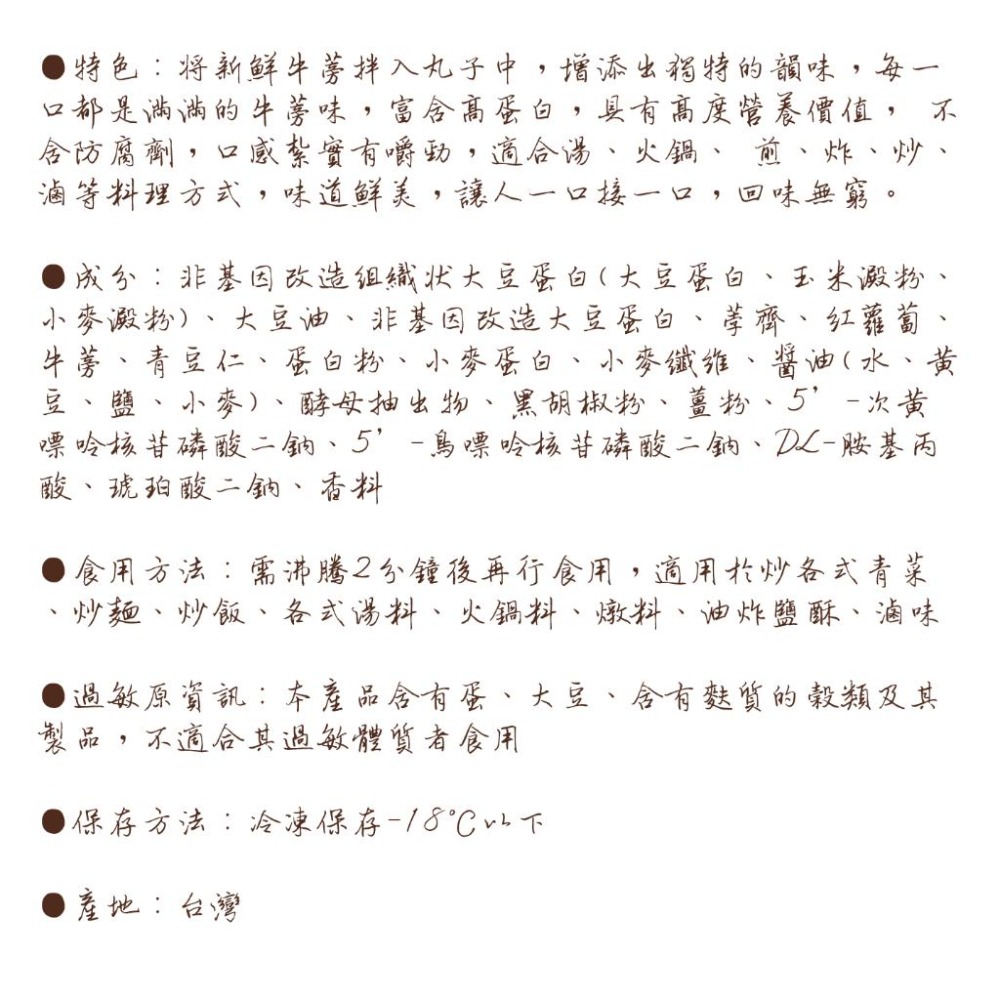 ●特色：將新鮮牛蒡拌入丸子中，增添出獨特的韻味，每一
口都是滿滿的牛蒡味，富含高蛋白，具有高度營養價值， 不
含防腐劑，口感紮實有嚼勁，適合湯、火鍋、 煎、炸、炒、
滷等料理方式，味道鮮美，讓人一口接一口，回味無窮。
●成分：非基因改造組織狀大豆蛋白(大豆蛋白、玉米澱粉、
小麥澱粉)、大豆油、非基因改造大豆蛋白、荸薺、紅蘿蔔、
牛蒡、青豆仁、蛋白粉、小麥蛋白、小麥纖維、醬油(水、黃
豆、鹽、小麥)、酵母抽出物、黑胡椒粉、薑粉、5’-次黃
嘌呤核苷磷酸二鈉、5’-鳥嘌呤核苷磷酸二鈉、DL-胺基丙
酸、琥珀酸二鈉、香料
●食用方法：需沸騰2分鐘後再行食用，適用於炒各式青菜
、炒麵、炒飯、各式湯料、火鍋料、燉料、油炸鹽酥、滷味
●過敏原資訊：本產品含有蛋、大豆、含有麩質的穀類及其
製品，不適合其過敏體質者食用
●保存方法：冷凍保存-18°C以下
●產地：台灣